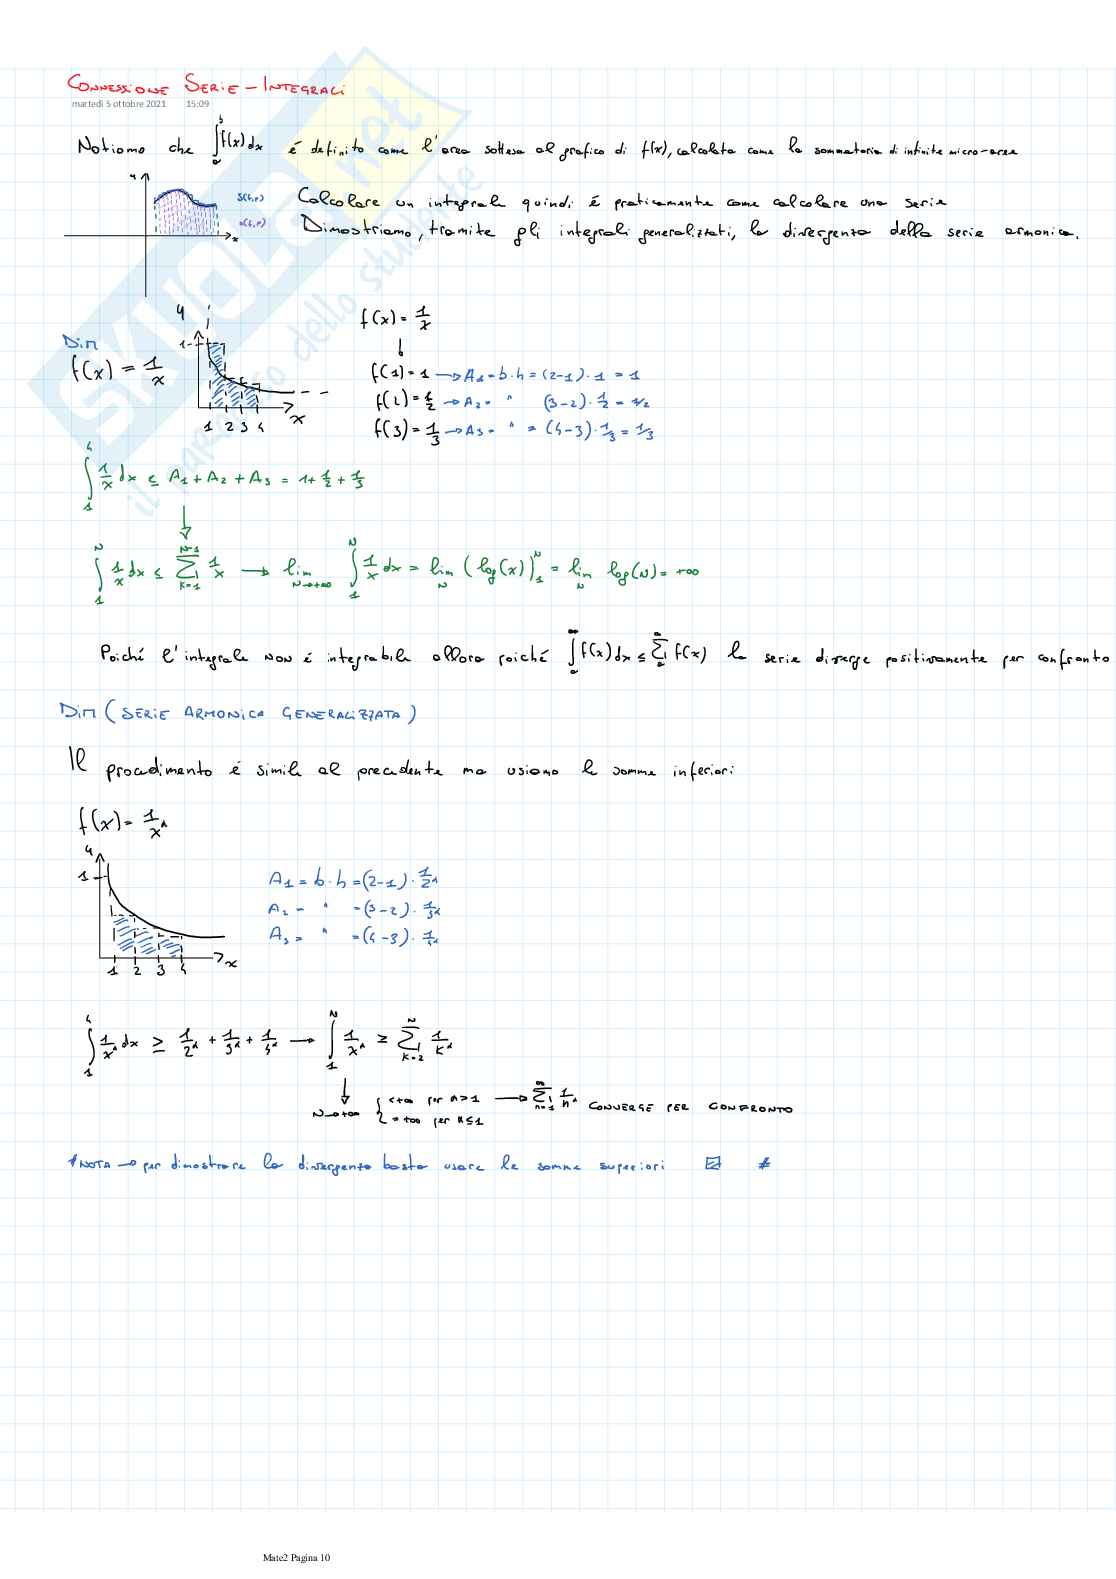 CONNESSIONE SERIE – INTEGRALI
martedì 5 ottobre 2021 15:09
Notiamo che ∫_a^b f(x) dx é definito come l'area sottesa al grafico di f(x), calcolata come la sommatoria di infinite micro-aree
y
S(f,P)
s(f,P)
x
Calcolare un integrale quindi é praticamente come calcolare una serie
Dimostriamo, tramite gli integrali generalizzati, la divergenza della serie armonica.
Dim
f(x) = 1/x
y
1
1 2 3 4 x
f(x) = 1/x
↓
f(1) = 1 → A1 = b·h = (2-1)·1 = 1
f(2) = 1/2 → A2 = " (3-2)·1/2 = 1/2
f(3) = 1/3 → A3 = " = (4-3)·1/3 = 1/3
∫_1^4 1/x dx ≤ A1 + A2 + A3 = 1 + 1/2 + 1/3
↓
∫_1^N 1/x dx ≤ Σ_{k=1}^{N-1} 1/x → lim_{N→+∞} ∫_1^N 1/x dx = lim_N (log(x))_1^N = lim_N log(N) = +∞
Poiché l'integrale NON é integrabile allora poiché ∫_a^∞ f(x) dx ≤ Σ_a^∞ f(x) la serie diverge positivamente per confronto
Dim (SERIE ARMONICA GENERALIZZATA)
Il procedimento é simile al precedente ma usiamo le somme inferiori
f(x) = 1/x^α
y
1
1 2 3 4 x
A1 = b·h = (2-1)·1/2^α
A2 = " = (3-2)·1/3^α
A3 = " = (4-3)·1/4^α
∫_1^4 1/x^α dx ≥ 1/2^α + 1/3^α + 1/4^α → ∫_1^N 1/x^α ≥ Σ_{k=2}^N 1/k^α
↓
N→+∞ { <+∞ per α>1 → Σ_{n=1}^∞ 1/n^α CONVERGE PER CONFRONTO
= +∞ per α≤1
#NOTA → per dimostrare la divergenza basta usare le somme superiori #
SKUOLA.net
il paradiso dello studente
Mate2 Pagina 10